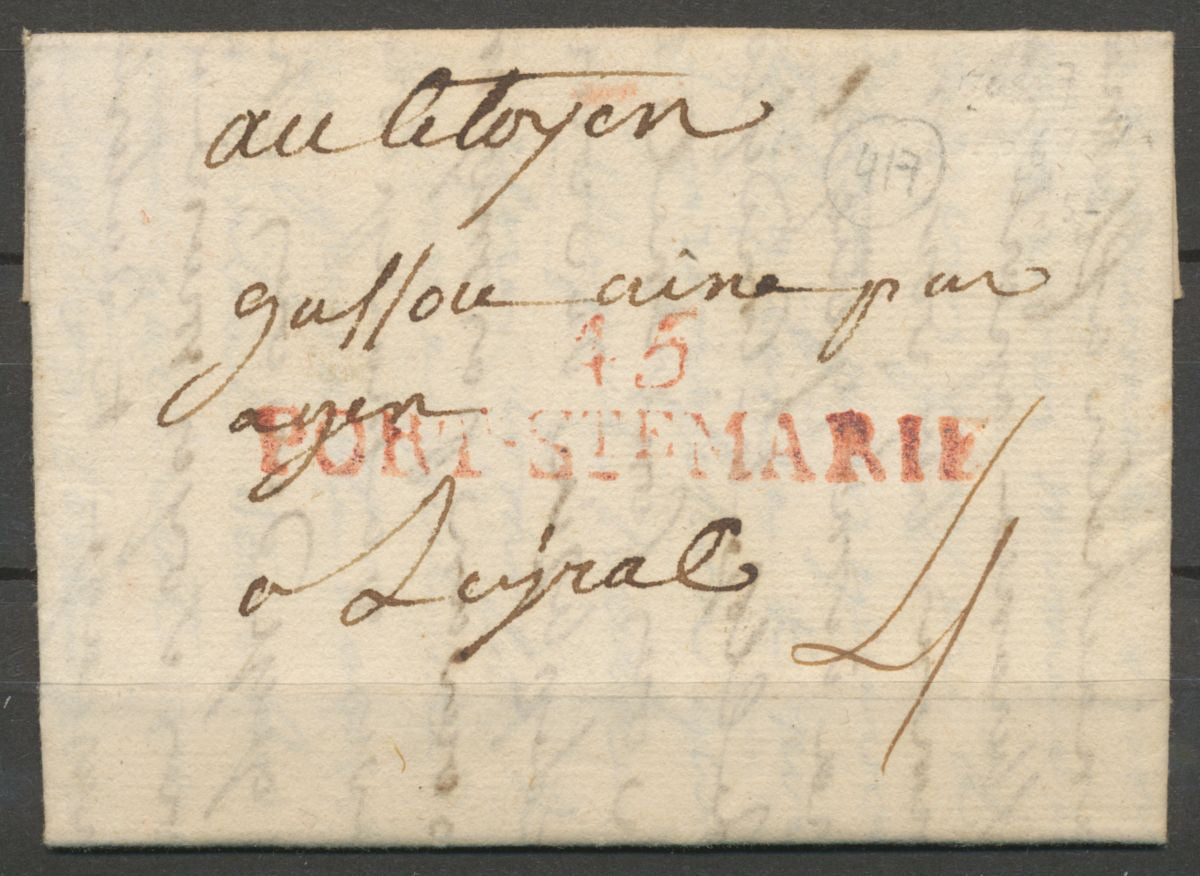 au Citoyen
417
gassou aine par
45
agen
PORT-STE MARIE
a Leyrac
4